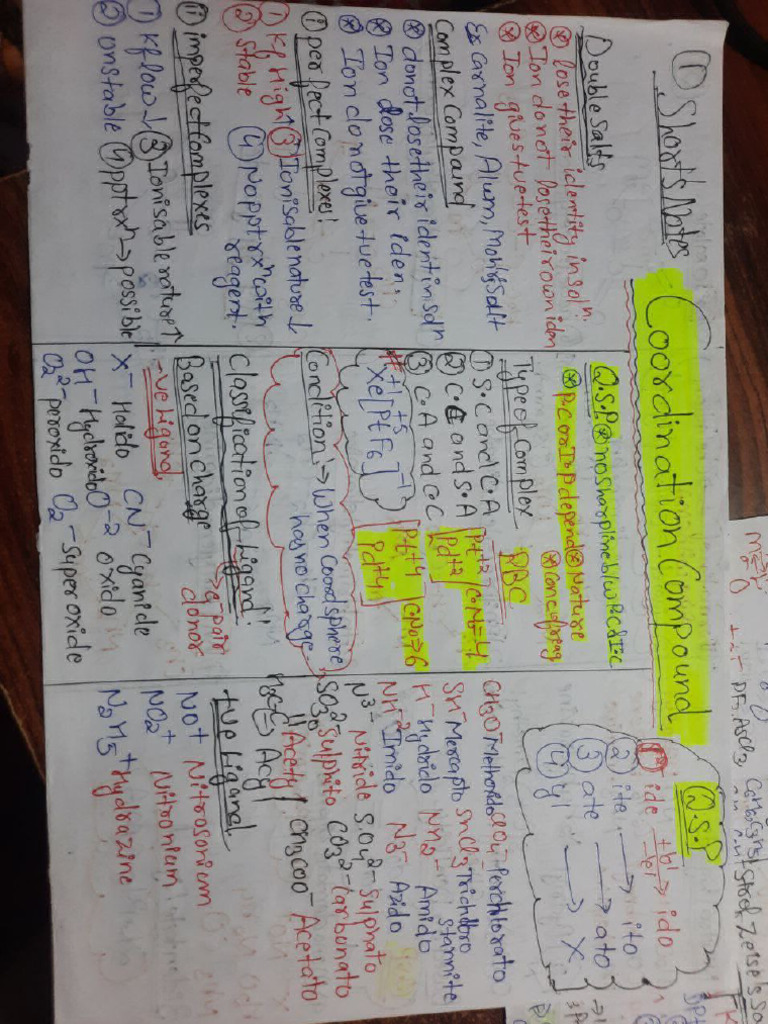 ① Shorts Notes
Coordination Compound
Double Salts
⊛ lose their identity in solⁿ.
⊛ Ion do not lose their own iden
⊛ Ion gives +ve test
Ex Carnalite, Alum, Mohr's Salt
Complex Compound
⊛ donot lose their ident in solⁿ
⊛ Ion lose their iden.
⊛ Ion do not give +ve test.
(i) perfect Complexes:
① Kf High↑ ③ Ionisable nature ↓
② stable ④ No ppt rxⁿ with
reagent.
(ii) imperfect Complexes
① Kf low ↓ ③ Ionisable nature ↑
② unstable ④ ppt rxⁿ → possible
Q.S.P ⊛ no sharp line b/w P.C & I.C
⊛ P.C or I.P depend ⊛ Nature
⊛ Conc. of reag
Type of Complex
① S.C and C.A
② C.C and S.A
③ C.A and C.C
RBC
Pt+2 Pd+2 C.N=4
Pt+4 Pd+4 CNo → 6
+1 +5 -1
Xe[PtF6]
Condition :→ When Coord sphere
has no charge
Classification of Ligand:
→ e- pair donor
Based on charge
-ve Ligand
X⁻ Halido CN⁻ Cyanide
OH⁻ Hydroxido O⁻² oxido
O₂²⁻ peroxido O₂⁻ Superoxide
Q.S.P
① ide +b' lel → ido
② ite → ito
③ ate → ato
④ yl → X
CH₃O⁻ Methoxido ClO₄⁻ Perchlorato
SH⁻ Mercapto SnCl₃ Trichloro
stannite
H⁻ Hydrido NH₂⁻ Amido
NH⁻² Imido N₃⁻ Azido
N³⁻ Nitride SO₄²⁻ Sulphato
SO₃²⁻ Sulphito CO₃²⁻ Carbonato
Acetyl CH₃COO⁻ Acetato
H₃C-C ⇒ Acyl
O
+ve Ligand
NO⁺ Nitrosonium
NO₂⁺ Nitronium
N₂H₅⁺ Hydrazine